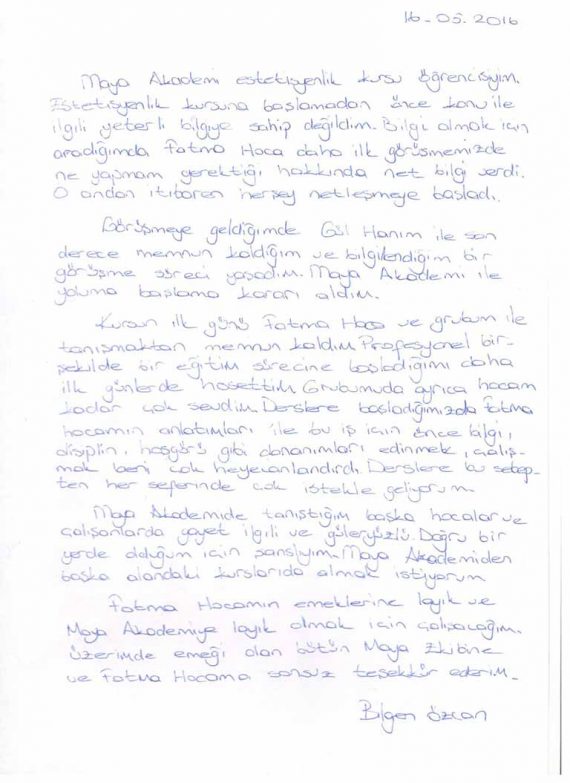 16.05.2016
Maya Akademi estetisyenlik kursu öğrencisiyim.
Estetisyenlik kursuna başlamadan önce konu ile
ilgili yeterli bilgiye sahip değildim. Bilgi almak için
aradığımda Fatma Hoca daha ilk görüşmemizde
ne yapmam gerektiği hakkında net bilgi verdi.
O andan itibaren herşey netleşmeye başladı.
Görüşmeye geldiğimde Gül Hanım ile son
derece memnun kaldığım ve bilgilendiğim bir
görüşme süreci yaşadım. Maya Akademi ile
yoluma başlama kararı aldım.
Kursun ilk günü Fatma Hoca ve grubum ile
tanışmaktan memnun kaldım. Profesyonel bir-
şekilde bir eğitim sürecine başladığımı daha
ilk günlerde hissettim. Grubumuda ayrıca hocam
kadar çok sevdim. Derslere başladığımızda Fatma
hocamın anlatımları ile bu iş için önce bilgi,
disiplin, hoşgörü gibi donanımları edinmek, çalış-
mak beni çok heyecanlandırdı. Derslere bu sebep-
ten her seferinde çok istekle geliyorum
Maya Akademide tanıştığım başka hocalar ve
çalışanlarda gayet ilgili ve güleryüzlü. Doğru bir
yerde olduğum için şanslıyım. Maya Akademiden
başka alandaki kurslarıda almak istiyorum
Fatma Hocamın emeklerine layık ve
Maya Akademiye layık olmak için çalışacağım.
üzerimde emeği olan bütün Maya Ekibine
ve Fatma Hocama sonsuz teşekkür ederim.
Bilgen Özcan